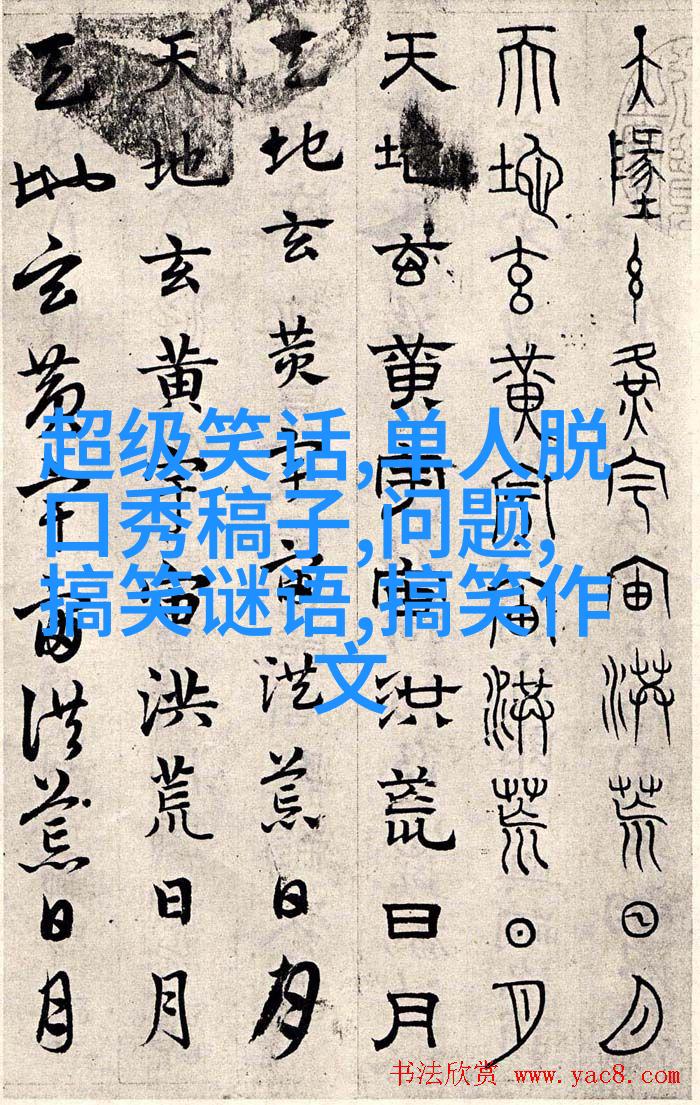 天地玄黄宇宙洪荒日月
天地玄黄宇宙洪荒日月
天地玄黄宇宙洪荒日月
天地玄黄宇宙洪荒日月
天地玄黄宇宙洪荒日月
天地玄黄宇宙洪荒日月
超级笑话,单人脱
口秀稿子,问题,
搞笑谜语,搞笑作
文
书法欣赏 www.yac8.com